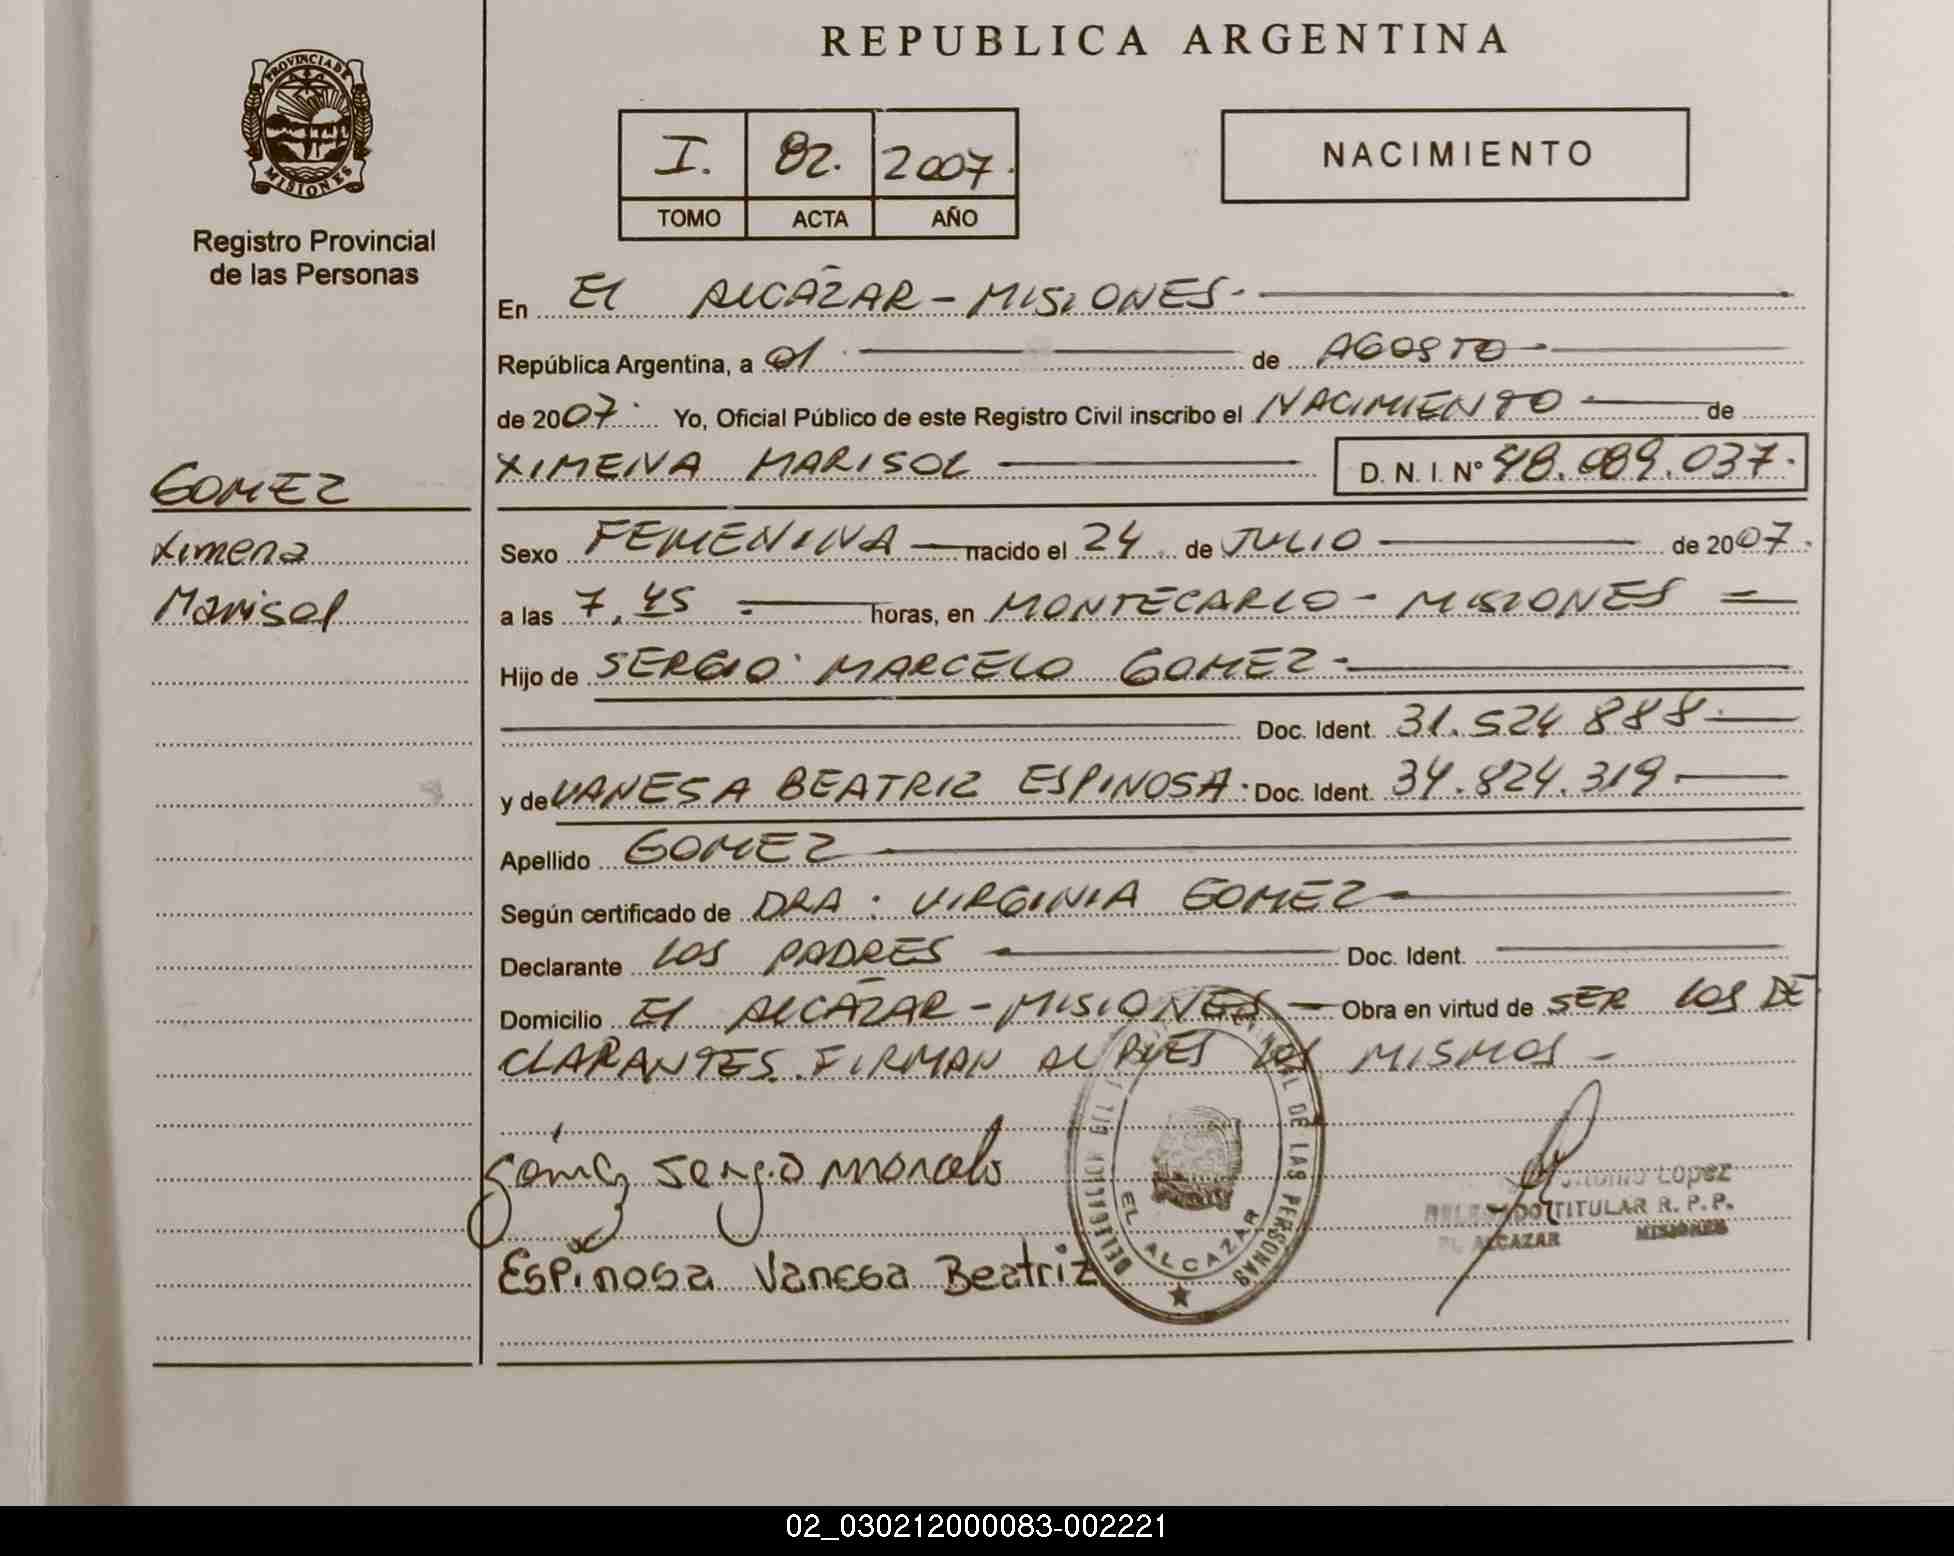 REPUBLICA ARGENTINA
PROVINCIA DE MISIONES
Registro Provincial
de las Personas
I. 82. 2007.
TOMO ACTA AÑO
NACIMIENTO
En El ALCÁZAR - MISIONES -
República Argentina, a 01 de AGOSTO -
de 2007. Yo, Oficial Público de este Registro Civil inscribo el NACIMIENTO - de
XIMENA MARISOL D. N. I. N° 48.089.037.
GOMEZ
Ximena
Marisol
Sexo FEMENINA nacido el 24 de JULIO de 2007.
a las 7,45 horas, en MONTECARLO - MISIONES
Hijo de SERGIO MARCELO GOMEZ -
Doc. Ident. 31.524.888
y de VANESA BEATRIZ ESPINOSA. Doc. Ident. 34.824.319
Apellido GOMEZ
Según certificado de DRA. VIRGINIA GOMEZ
Declarante LOS PADRES Doc. Ident.
Domicilio El ALCÁZAR - MISIONES - Obra en virtud de SER LOS DE
CLARANTES. FIRMAN AL PIES LOS MISMOS -
Gómez Sergio Marcelo
Espinosa Vanesa Beatriz
DE LAS PERSONAS
EL ALCAZAR
Lopez
TITULAR R. P. P.
EL ALCAZAR MISIONES
02_030212000083-002221